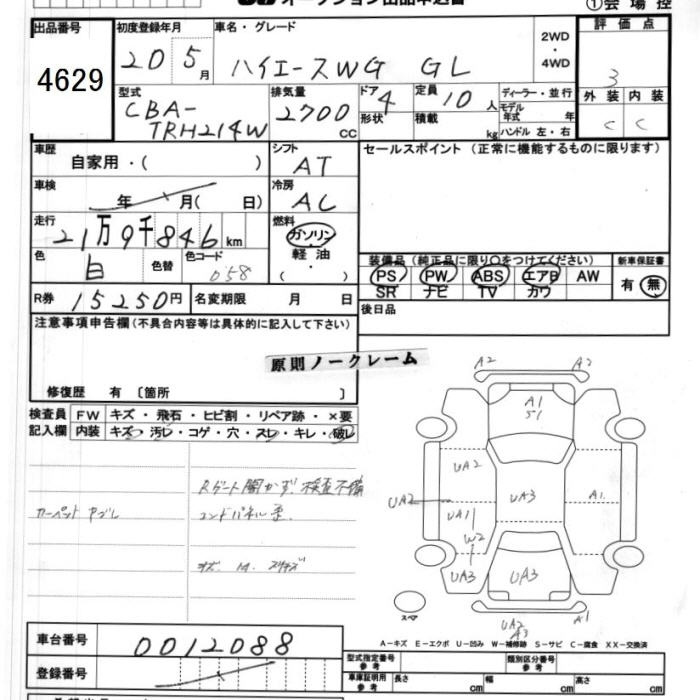 ①会場控
出品番号 初度登録年月 車名・グレード 評価点
4629 20 5月 ハイエースWG GL 2WD・4WD 3
型式 排気量 ドア 定員 ディーラー・並行 外装 内装
CBA-TRH214W 2700cc 4 10人 モデル年式 年 C C
形状 積載 kg ハンドル 左・右
車歴 シフト セールスポイント (正常に機能するものに限ります)
自家用・( ) AT
車検 冷房
年 月( 日) AC
走行 燃料
21万9千846km ガソリン
色 色替 色コード 軽油
白 058 (・)
装備品 (純正品に限り○をつけてください) 新車保証書
PS PW ABS エアB AW 有・無
SR ナビ TV カワ
R券 15250円 名変期限 月 日 後日品
注意事項申告欄(不具合内容等は具体的に記入して下さい)
原則ノークレーム
修復歴 有 〔箇所 〕
検査員 FW キズ・飛石・ヒビ割・リペア跡・×要
記入欄 内装 キズ・汚レ・コゲ・穴・スレ・キレ・破レ
Rゲート開かず 検査不備
カーペット ヤブレ コンドパネル歪
A2 A2
A1
51
UA2
UA2 UA3 A1
UA1
W2
UA3 UA3
スペア UA2 A1
A3
A−キズ E−エクボ U−凹み W−補修跡 S−サビ C−腐食 XX−交換済
車台番号 0012088
登録番号
型式指定番号 参考 類別区分番号 参考
車庫証明用 参考 長さ cm 幅 cm 高さ cm